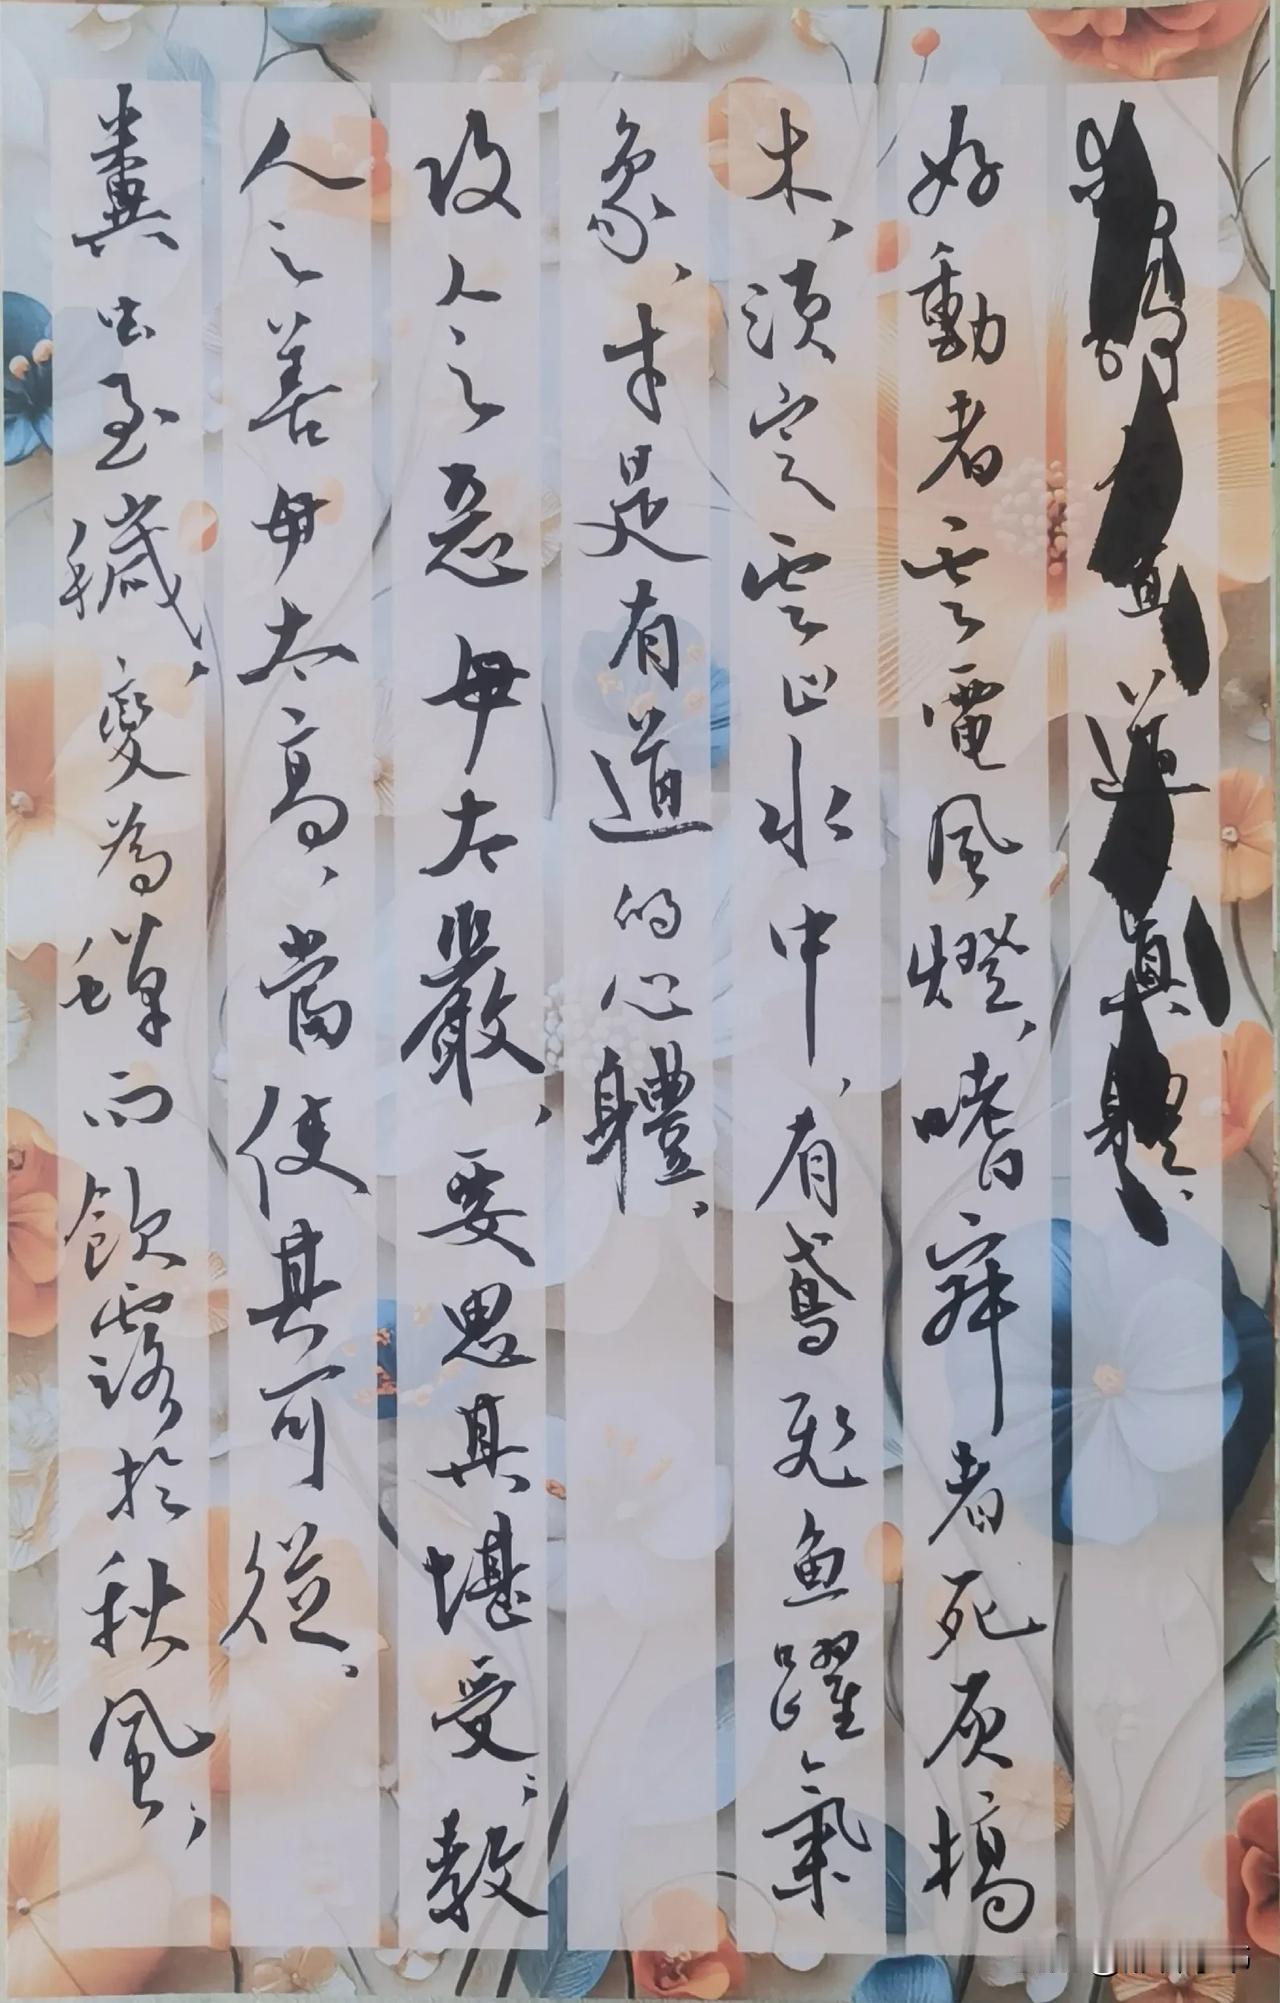 道真體。
好動者云電風燈，嗜寂者死灰槁
木，須定雲止水中，有鳶飛魚躍氣
象，才是有道的心體。
攻人之惡毋太嚴，要思其堪受；教
人之善毋太高，當使其可從。
糞虫至穢，變為蟬而飲露於秋風；